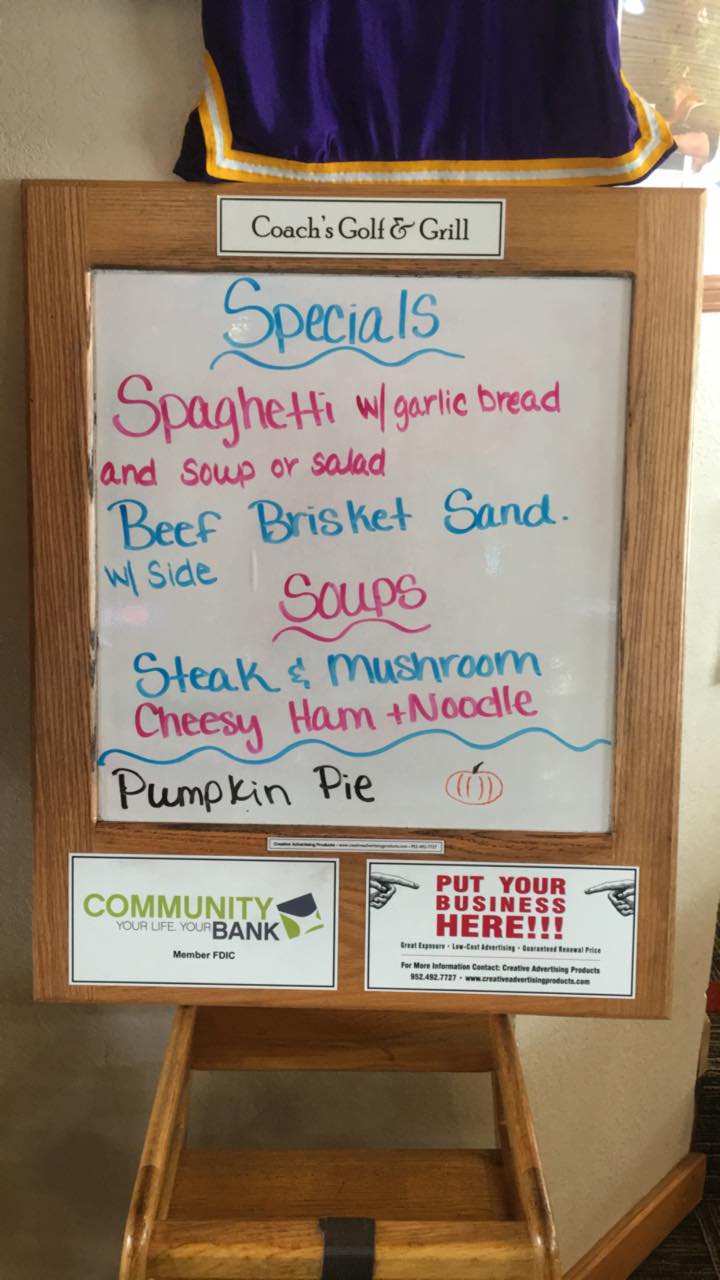 Coach's Golf & Grill
Specials
Spaghetti w/ garlic bread
and soup or salad
Beef Brisket Sand.
w/ side
Soups
Steak & Mushroom
Cheesy Ham + Noodle
Pumpkin Pie
Creative Advertising Products • www.creativeadvertisingproducts.com • 952.492.7727
COMMUNITY
YOUR LIFE. YOUR BANK
Member FDIC
PUT YOUR
BUSINESS
HERE!!!
Great Exposure • Low-Cost Advertising • Guaranteed Renewal Price
For More Information Contact: Creative Advertising Products
952.492.7727 • www.creativeadvertisingproducts.com